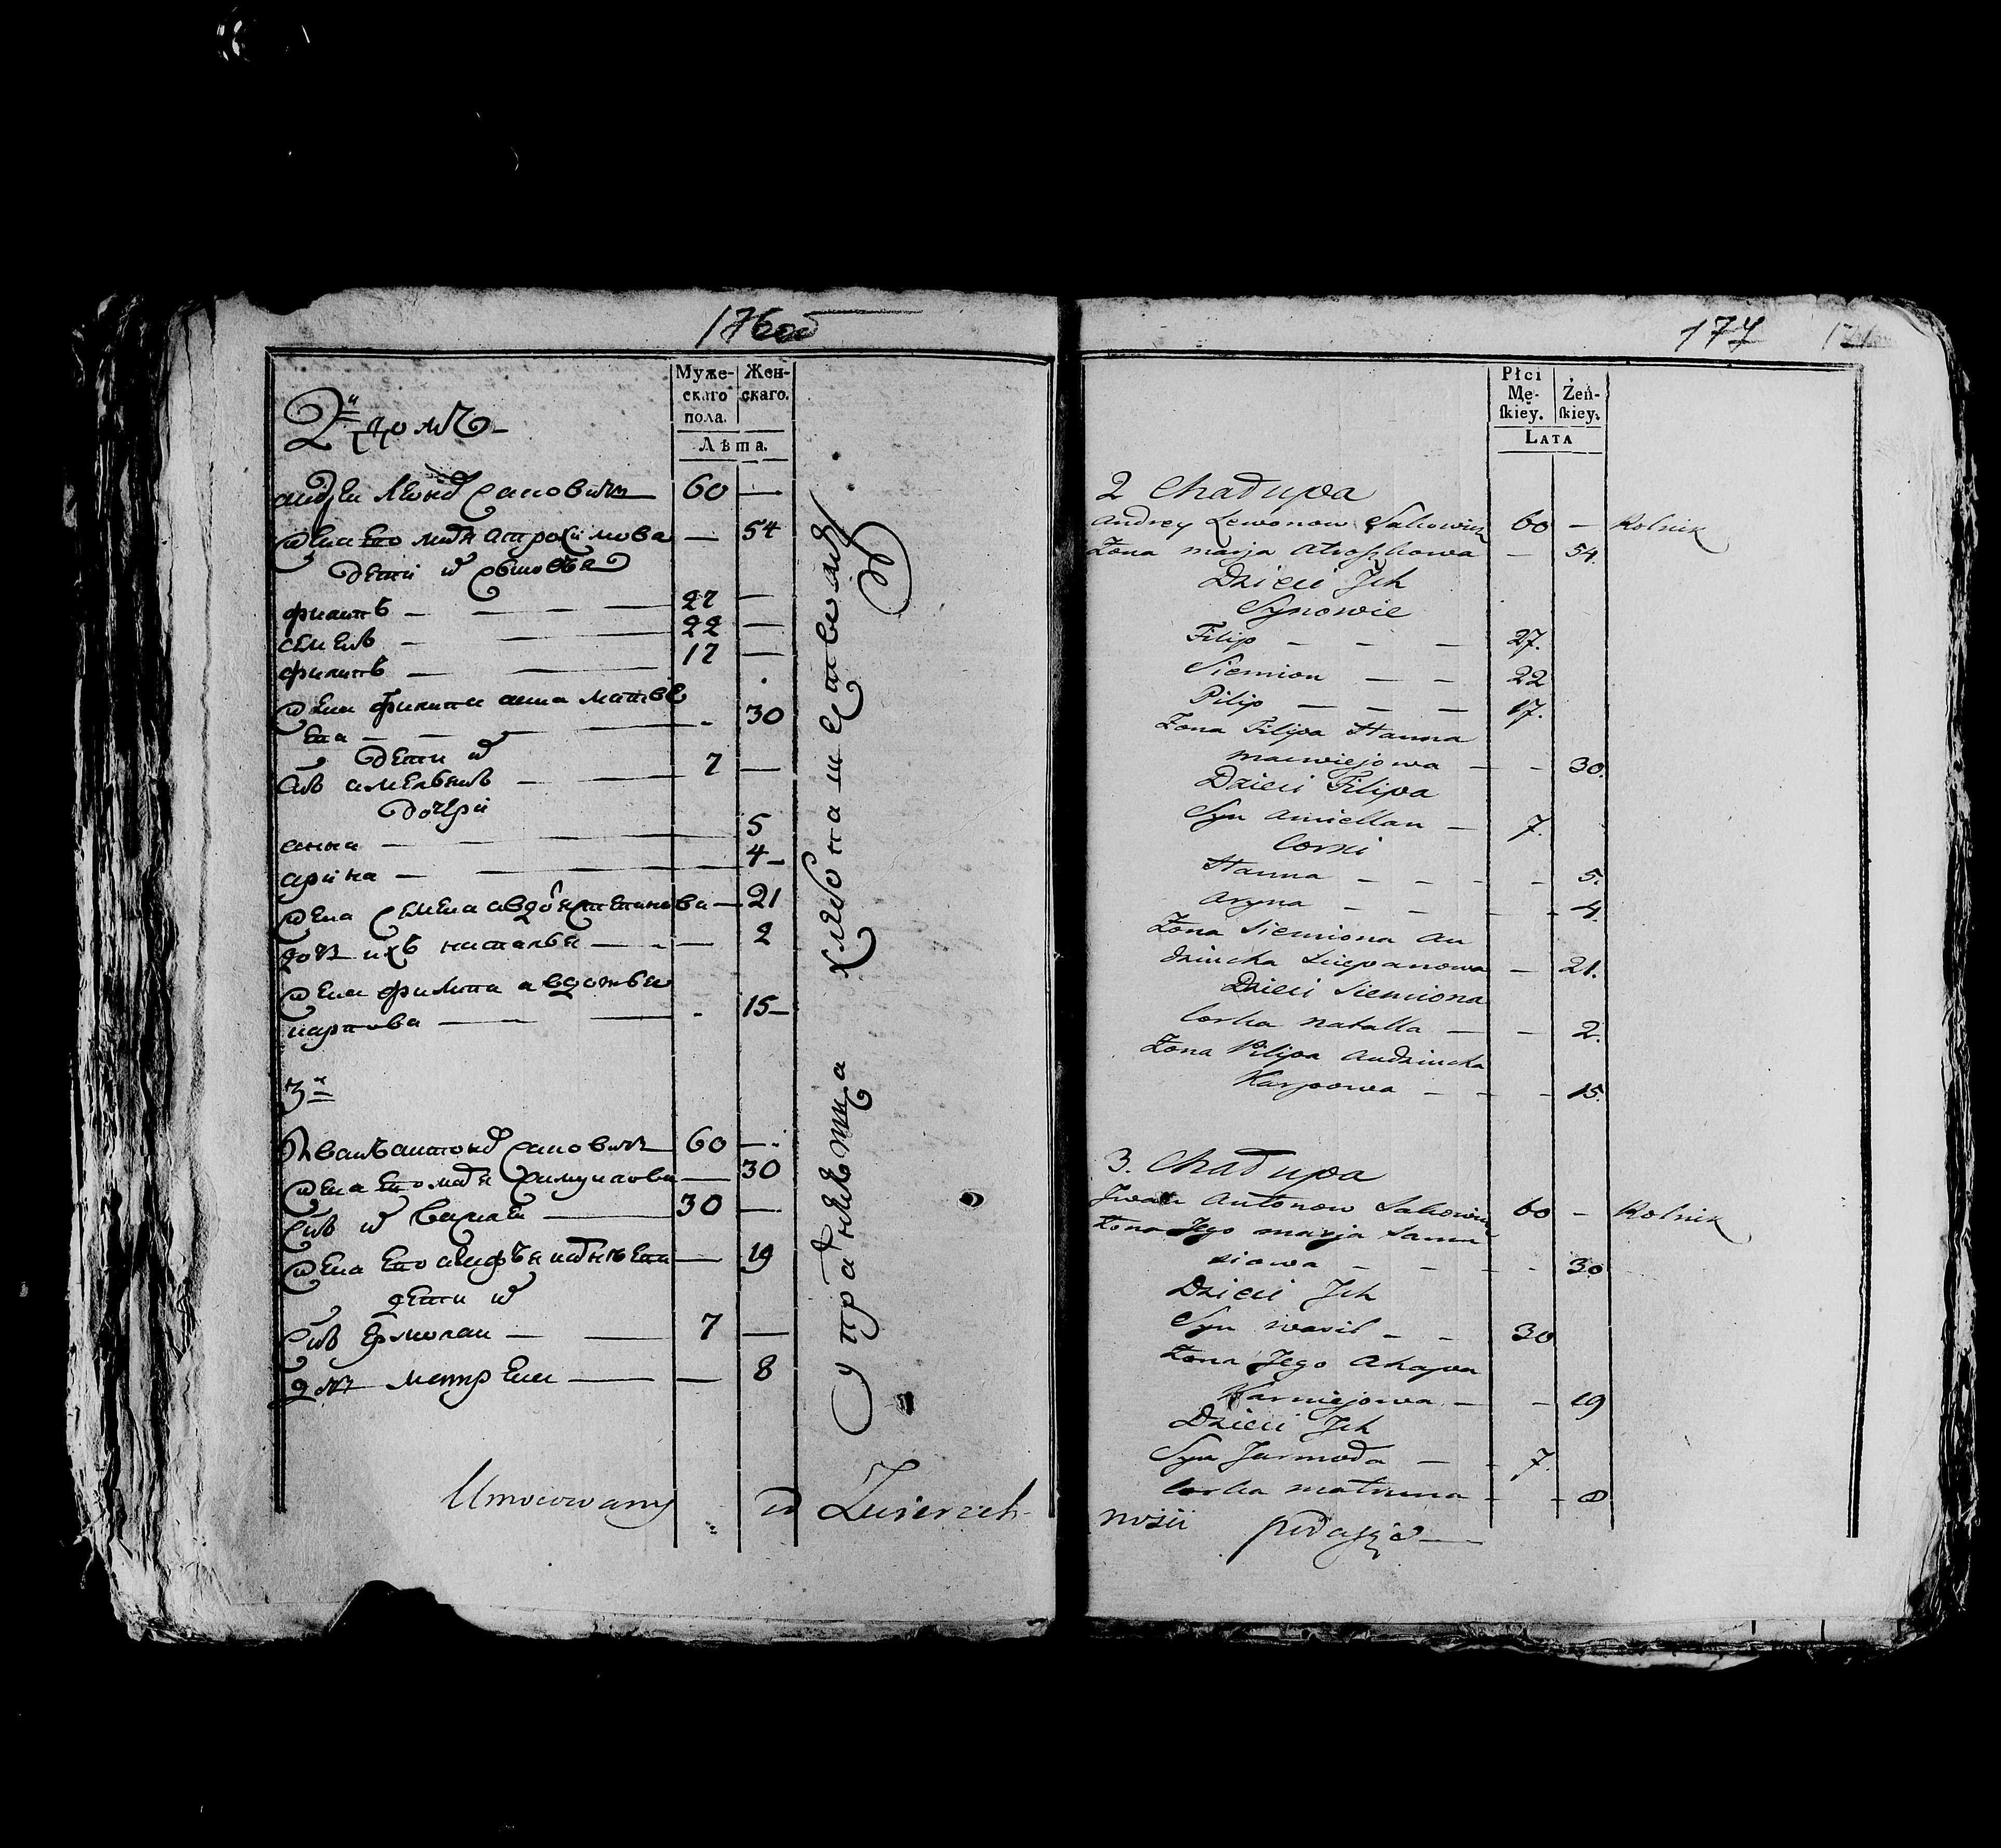 176об
Муже-
скаго
пола.
Жен-
скаго.
Лѣта.
2й домъ
андрей леонов саковичъ 60 —
жена его мар атрохимова — 54
дети
филипъ — 27 —
семенъ — 22 —
филипъ — 17 —
жена филипа анна матве
ева — 30
дети
сынъ амельянъ — 7 —
дочери
анна — 5
арина — 4
жена семена авдо степанова — 21
дочь ихъ наталья — 2
жена филипа авдотья
карпова — 15
3й
Иванъ антонов саковичъ 60 —
жена его — 30
сынъ василей 30 —
жена его агафья — 19
дети
сынъ ермолай — 7 —
дочь матрена — 8
упражняютца хлебопашествомъ
Umocowany w Zwierzch-
177
Płci
Mę-
skiey.
Żeń-
skiey.
LATA
2 Chałupa
Andrey Lewonow Sakowicz 60 — Rolnik
Żona marja Atroszkowa — 54.
Dzieci Jch
Synowie
Filip — — — 27.
Siemion — — 22
Pilip — — — 17.
Żona Filipa Hanna
maciejowa — — 30.
Dzieci Filipa
Syn amiellan — 7.
Corki
Hanna — — — — 5.
Aryna — — — — 4.
Żona Siemiona Au
dziucha Sciepanowa — 21.
Dzieci Siemiona
Corka natalla — — 2.
Żona Pilipa Audziucha
Karpowa — — — 15.
3. Chałupa
Jwan Antonow Sakowicz 60 — Rolnik
Żona Jego marja Samu
siowa — — — — 30
Dzieci Jch
Syn wasil — — 30
Żona Jego Ahapa
Karniejowa — — 19
Dzieci Jch
Syn Jarmoła — — 7.
Corka matruna — — 8
ności podaję —